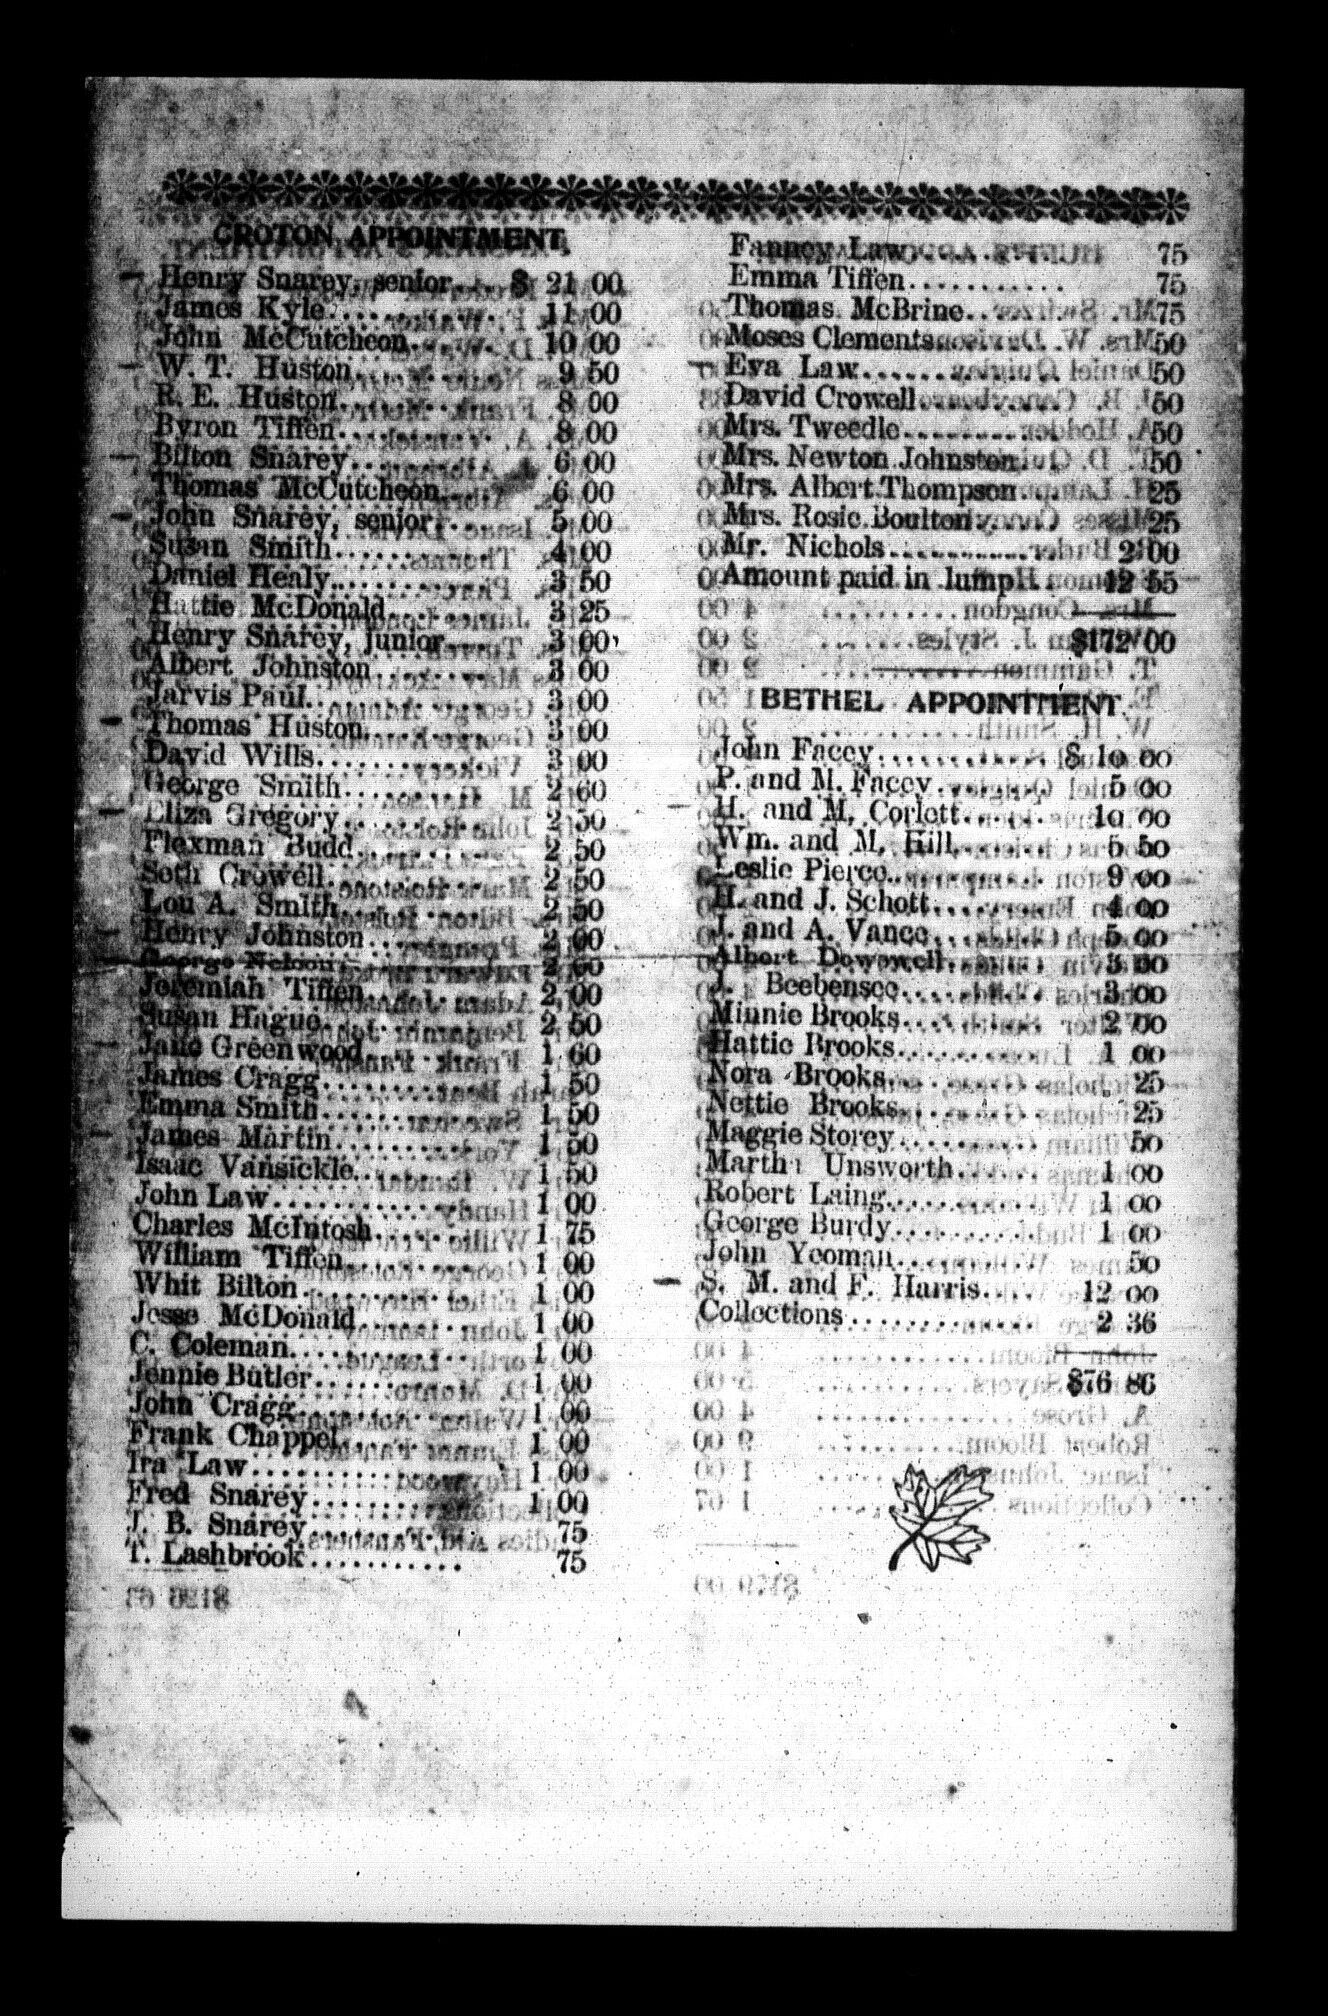 CROTON APPOINTMENT.
Henry Snarey, senior.... $ 21 00
James Kyle.............. 11 00
John McCutcheon....... 10 00
W. T. Huston........... 9 50
R. E. Huston............ 8 00
Byron Tiffen............ 8 00
Bilton Snarey........... 6 00
Thomas McCutcheon..... 6 00
John Snarey, senior.... 5 00
Susan Smith............ 4 00
Daniel Healy............ 3 50
Hattie McDonald........ 3 25
Henry Snarey, junior.... 3 00
Albert Johnston......... 3 00
Jarvis Paul............. 3 00
Thomas Huston.......... 3 00
David Wills............. 3 00
George Smith........... 2 60
Eliza Gregory........... 2 50
Flexman Budd........... 2 50
Seth Crowell............ 2 50
Lou A. Smith........... 2 50
Henry Johnston......... 2 00
George Nelson.......... 2 00
Jeremiah Tiffen......... 2 00
Susan Hague............ 2 50
Jane Greenwood......... 1 60
James Cragg............ 1 50
Emma Smith............ 1 50
James Martin........... 1 50
Isaac Vansickle......... 1 50
John Law............... 1 00
Charles McIntosh........ 1 75
William Tiffen.......... 1 00
Whit Bilton............. 1 00
Jesse McDonald......... 1 00
C. Coleman............. 1 00
Jennie Butler........... 1 00
John Cragg............. 1 00
Frank Chappel.......... 1 00
Ira Law................ 1 00
Fred Snarey............ 1 00
J. B. Snarey............ 75
T. Lashbrook........... 75
Fanney Law............ 75
Emma Tiffen........... 75
Thomas McBrine........ 75
Moses Clements......... 50
Eva Law............... 50
David Crowell.......... 50
Mrs. Tweedle........... 50
Mrs. Newton Johnston.... 50
Mrs. Albert Thompson.... 25
Mrs. Rosie Boulton...... 25
Mr. Nichols............. 2 00
Amount paid in lump.... 12 55
$172 00
BETHEL APPOINTMENT.
John Facey............. $ 10 00
P. and M. Facey........ 5 00
H. and M. Corlett....... 10 00
Wm. and M. Hill........ 5 50
Leslie Pierce........... 9 00
H. and J. Schott........ 4 00
J. and A. Vance........ 5 00
Albert Dowswell........ 3 00
J. Beebensee........... 3 00
Minnie Brooks.......... 2 00
Hattie Brooks.......... 1 00
Nora Brooks........... 25
Nettie Brooks.......... 25
Maggie Storey.......... 50
Martha Unsworth....... 1 00
Robert Laing........... 1 00
George Burdy........... 1 00
John Yeoman........... 50
S. M. and F. Harris..... 12 00
Collections............. 2 36
$76 86